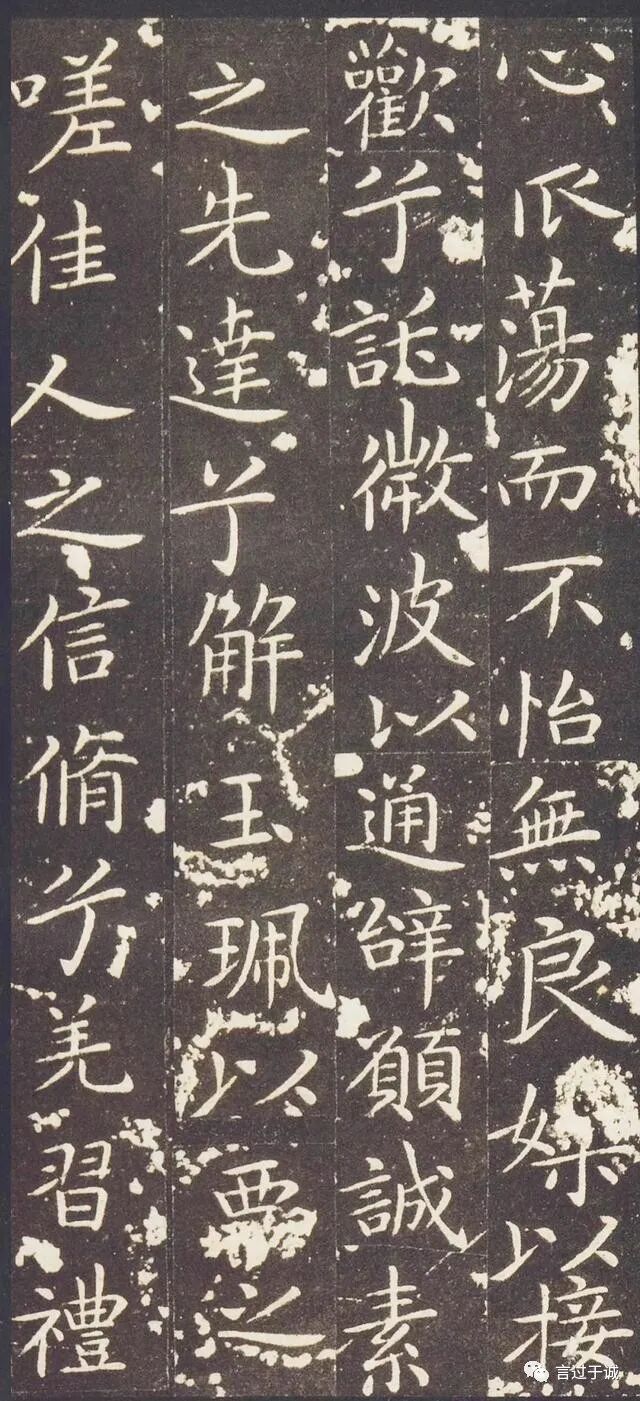 心蕩而不怡無良媒以接
歡兮託微波以通辭願誠素
之先達兮解玉珮以要之
嗟佳人之信脩兮羌習禮
言过于诚